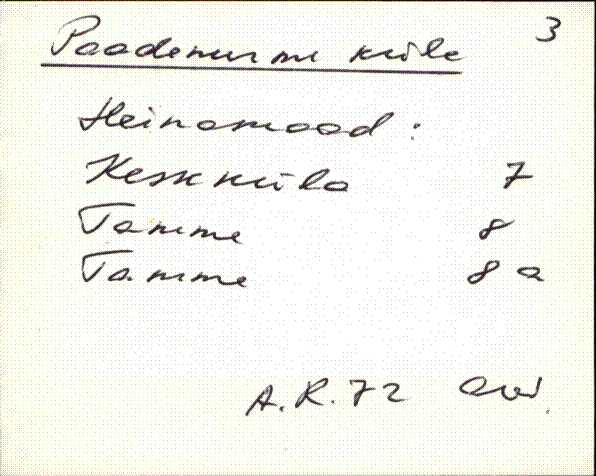 3
Paadenurme küla
Heinamaad:
Keskküla 7
Tamme 8
Tamme 8 a
A. R. 72